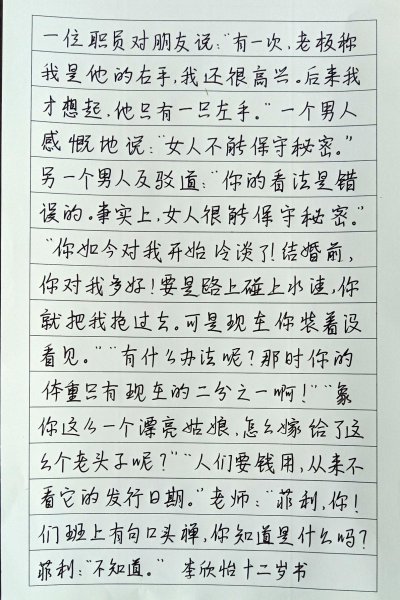 一位职员对朋友说:“有一次,老板称
我是他的右手,我还很高兴。后来我
才想起,他只有一只左手。”一个男人
感慨地说:“女人不能保守秘密。”
另一个男人反驳道:“你的看法是错
误的。事实上,女人很能保守秘密。”
“你如今对我开始冷淡了!结婚前,
你对我多好!要是路上碰上水洼,你
就把我抱过去。可是现在你装着没
看见。”“有什么办法呢?那时你的
体重只有现在的二分之一啊!”“象
你这么一个漂亮姑娘,怎么嫁给了这
么个老头子呢?”“人们要钱用,从来不
看它的发行日期。”老师:“菲利,你!
们班上有句口头禅,你知道是什么吗?
菲利:“不知道。” 李欣怡十二岁书